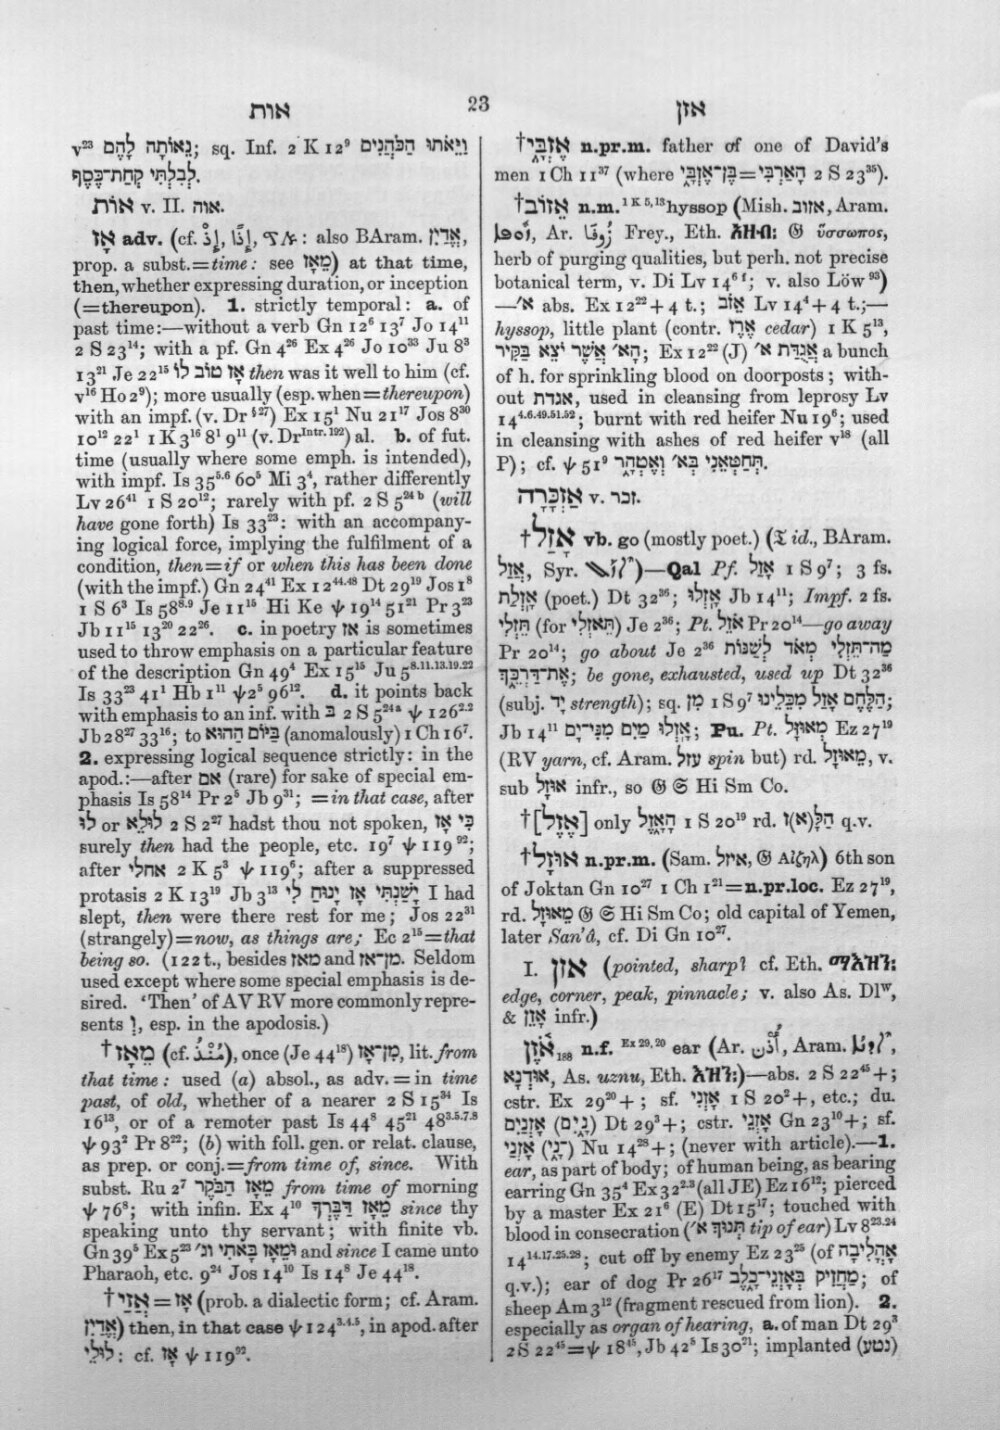 אות
23
אזן
v²³ נֵאוֹתָה לָהֶם; sq. Inf. 2 K 12⁹ וַיֵּאֹתוּ הַכֹּהֲנִים
לְבִלְתִּי קְחַת־כֶּסֶף.
אוֹת v. II. אוה.
אָז adv. (cf. إِذًا, إِذْ, : also BAram. אֱדַיִן,
prop. a subst.=time: see מֵאָז) at that time,
then, whether expressing duration, or inception
(=thereupon). 1. strictly temporal: a. of
past time:—without a verb Gn 12⁶ 13⁷ Jo 14¹¹
2 S 23¹⁴; with a pf. Gn 4²⁶ Ex 4²⁶ Jo 10³³ Ju 8³
13²¹ Je 22¹⁵ אָז טוֹב לוֹ then was it well to him (cf.
v¹⁶ Ho 2⁹); more usually (esp. when=thereupon)
with an impf. (v. Dr§²⁷) Ex 15¹ Nu 21¹⁷ Jos 8³⁰
10¹² 22¹ 1 K 3¹⁶ 8¹ 9¹¹ (v. Dr Intr. 192) al. b. of fut.
time (usually where some emph. is intended),
with impf. Is 35⁵·⁶ 60⁵ Mi 3⁴, rather differently
Lv 26⁴¹ 1 S 20¹²; rarely with pf. 2 S 5²⁴ᵇ (will
have gone forth) Is 33²³: with an accompany-
ing logical force, implying the fulfilment of a
condition, then=if or when this has been done
(with the impf.) Gn 24⁴¹ Ex 12⁴⁴·⁴⁸ Dt 29¹⁹ Jos 1⁸
1 S 6³ Is 58⁸·⁹ Je 11¹⁵ Hi Ke ψ 19¹⁴ 51²¹ Pr 3²³
Jb 11¹⁵ 13²⁰ 22²⁶. c. in poetry אז is sometimes
used to throw emphasis on a particular feature
of the description Gn 49⁴ Ex 15¹⁵ Ju 5⁸·¹¹·¹³·¹⁹·²²
Is 33²³ 41¹ Hb 1¹¹ ψ 2⁵ 96¹². d. it points back
with emphasis to an inf. with בְּ 2 S 5²⁴ᵃ ψ 126²·²
Jb 28²⁷ 33¹⁶; to בַּיּוֹם הַהוּא (anomalously) 1 Ch 16⁷.
2. expressing logical sequence strictly: in the
apod.:—after אִם (rare) for sake of special em-
phasis Is 58¹⁴ Pr 2⁵ Jb 9³¹; =in that case, after
לוּ or לוּלֵא 2 S 2²⁷ hadst thou not spoken, כִּי אָז
surely then had the people, etc. 19⁷ ψ 119⁹²;
after אחלי 2 K 5³ ψ 119⁶; after a suppressed
protasis 2 K 13¹⁹ Jb 3¹³ יָשַׁנְתִּי אָז יָנוּחַ לִי I had
slept, then were there rest for me; Jos 22³¹
(strangely)=now, as things are; Ec 2¹⁵=that
being so. (122 t., besides מאז and מן־אז. Seldom
used except where some special emphasis is de-
sired. ‘Then’ of AV RV more commonly repre-
sents וְ, esp. in the apodosis.)
†מֵאָז (cf. مُنْذُ), once (Je 44¹⁸) מִן־אָז, lit. from
that time: used (a) absol., as adv.=in time
past, of old, whether of a nearer 2 S 15³⁴ Is
16¹³, or of a remoter past Is 44⁸ 45²¹ 48³·⁵·⁷·⁸
ψ 93² Pr 8²²; (b) with foll. gen. or relat. clause,
as prep. or conj.=from time of, since. With
subst. Ru 2⁷ מֵאָז הַבֹּקֶר from time of morning
ψ 76⁸; with infin. Ex 4¹⁰ מֵאָז דַּבֶּרְךָ since thy
speaking unto thy servant; with finite vb.
Gn 39⁵ Ex 5²³ וּמֵאָז בָּאתִי וג׳ and since I came unto
Pharaoh, etc. 9²⁴ Jos 14¹⁰ Is 14⁸ Je 44¹⁸.
†אֲזַי = אָז (prob. a dialectic form; cf. Aram.
אֱדַיִן) then, in that case ψ 124³·⁴·⁵, in apod. after
לוּלֵי: cf. אָז ψ 119⁹².
†אֶזְבָּ֑י n.pr.m. father of one of David’s
men 1 Ch 11³⁷ (where בֶּן־אֶזְבָּ֑י=הָאַרְבִּי 2 S 23³⁵).
†אֵזוֹב n.m. 1 K 5, 13 hyssop (Mish. אזוב, Aram.
Ar. زُوفَا Frey., Eth. አዞብ፡ 𝔊 ὕσσωπος,
herb of purging qualities, but perh. not precise
botanical term, v. Di Lv 14⁶ᶠ; v. also Löw⁹³)
—א׳ abs. Ex 12²²+4 t.; אֵזֹב Lv 14⁴+4 t.;—
hyssop, little plant (contr. אֶרֶז cedar) 1 K 5¹³,
הָא׳ אֲשֶׁר יֹצֵא בַּקִּיר; Ex 12²² (J) אֲגֻדַּת א׳ a bunch
of h. for sprinkling blood on doorposts; with-
out אגדת, used in cleansing from leprosy Lv
14⁴·⁶·⁴⁹·⁵¹·⁵²; burnt with red heifer Nu 19⁶; used
in cleansing with ashes of red heifer v¹⁸ (all
P); cf. ψ 51⁹ תְּחַטְּאֵנִי בְּא׳ וְאֶטְהָר.
אַזְכָּרָה v. זכר.
†אָזַל vb. go (mostly poet.) (𝔗 id., BAram.
אֲזַל, Syr. )—Qal Pf. אָזַל 1 S 9⁷; 3 fs.
אָזְלַת (poet.) Dt 32³⁶; אָזְלוּ Jb 14¹¹; Impf. 2 fs.
תֵּזְלִי (for תֵּאזְלִי) Je 2³⁶; Pt. אֹזֵל Pr 20¹⁴—go away
Pr 20¹⁴; go about Je 2³⁶ מַה־תֵּזְלִי מְאֹד לְשַׁנּוֹת
אֶת־דַּרְכֵּךְ; be gone, exhausted, used up Dt 32³⁶
(subj. יָד strength); sq. מִן 1 S 9⁷ הַלֶּחֶם אָזַל מִכֵּלֵינוּ;
Jb 14¹¹ אָזְלוּ מַיִם מִנִּי־יָם; Pu. Pt. מְאוּזָּל Ez 27¹⁹
(RV yarn, cf. Aram. עזל spin but) rd. מֵאוּזָל, v.
sub אוּזָל infr., so 𝔊 𝔖 Hi Sm Co.
†[אֶזֶל] only הָאָ֑זֶל 1 S 20¹⁹ rd. הַלָּ(א)ז q.v.
†אוּזָל n.pr.m. (Sam. איזל, 𝔊 Αἰζηλ) 6th son
of Joktan Gn 10²⁷ 1 Ch 1²¹=n.pr.loc. Ez 27¹⁹,
rd. מֵאוּזָל 𝔊 𝔖 Hi Sm Co; old capital of Yemen,
later San‘â, cf. Di Gn 10²⁷.
I. אזן (pointed, sharp? cf. Eth. ማእዘን፡
edge, corner, peak, pinnacle; v. also As. Dlʷ,
& אָזֵן infr.)
אֹזֶן₁₈₈ n.f. Ex 29, 20 ear (Ar. أُذُن, Aram.
אוּדְנָא, As. uznu, Eth. እዝን፡)—abs. 2 S 22⁴⁵+;
cstr. Ex 29²⁰+; sf. אָזְנִי 1 S 20²+, etc.; du.
אָזְנַיִם (נָ֑יִם) Dt 29³+; cstr. אָזְנֵי Gn 23¹⁰+; sf.
אָזְנַי (נָ֑י) Nu 14²⁸+; (never with article).—1.
ear, as part of body; of human being, as bearing
earring Gn 35⁴ Ex 32²·³ (all JE) Ez 16¹²; pierced
by a master Ex 21⁶ (E) Dt 15¹⁷; touched with
blood in consecration (תְּנוּךְ א׳ tip of ear) Lv 8²³·²⁴
14¹⁴·¹⁷·²⁵·²⁸; cut off by enemy Ez 23²⁵ (of אָהֳלִיבָה
q.v.); ear of dog Pr 26¹⁷ מַחֲזִיק בְּאָזְנֵי־כָלֶב; of
sheep Am 3¹² (fragment rescued from lion). 2.
especially as organ of hearing, a. of man Dt 29³
2 S 22⁴⁵=ψ 18⁴⁵, Jb 42⁵ Is 30²¹; implanted (נטע)